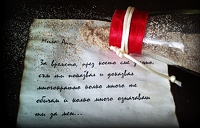 Мила Ани,
За времето, през което сме заедно
съм ти показвал и доказвал
многократно колко много те
обичам и колко много означаваш
ти за мен...